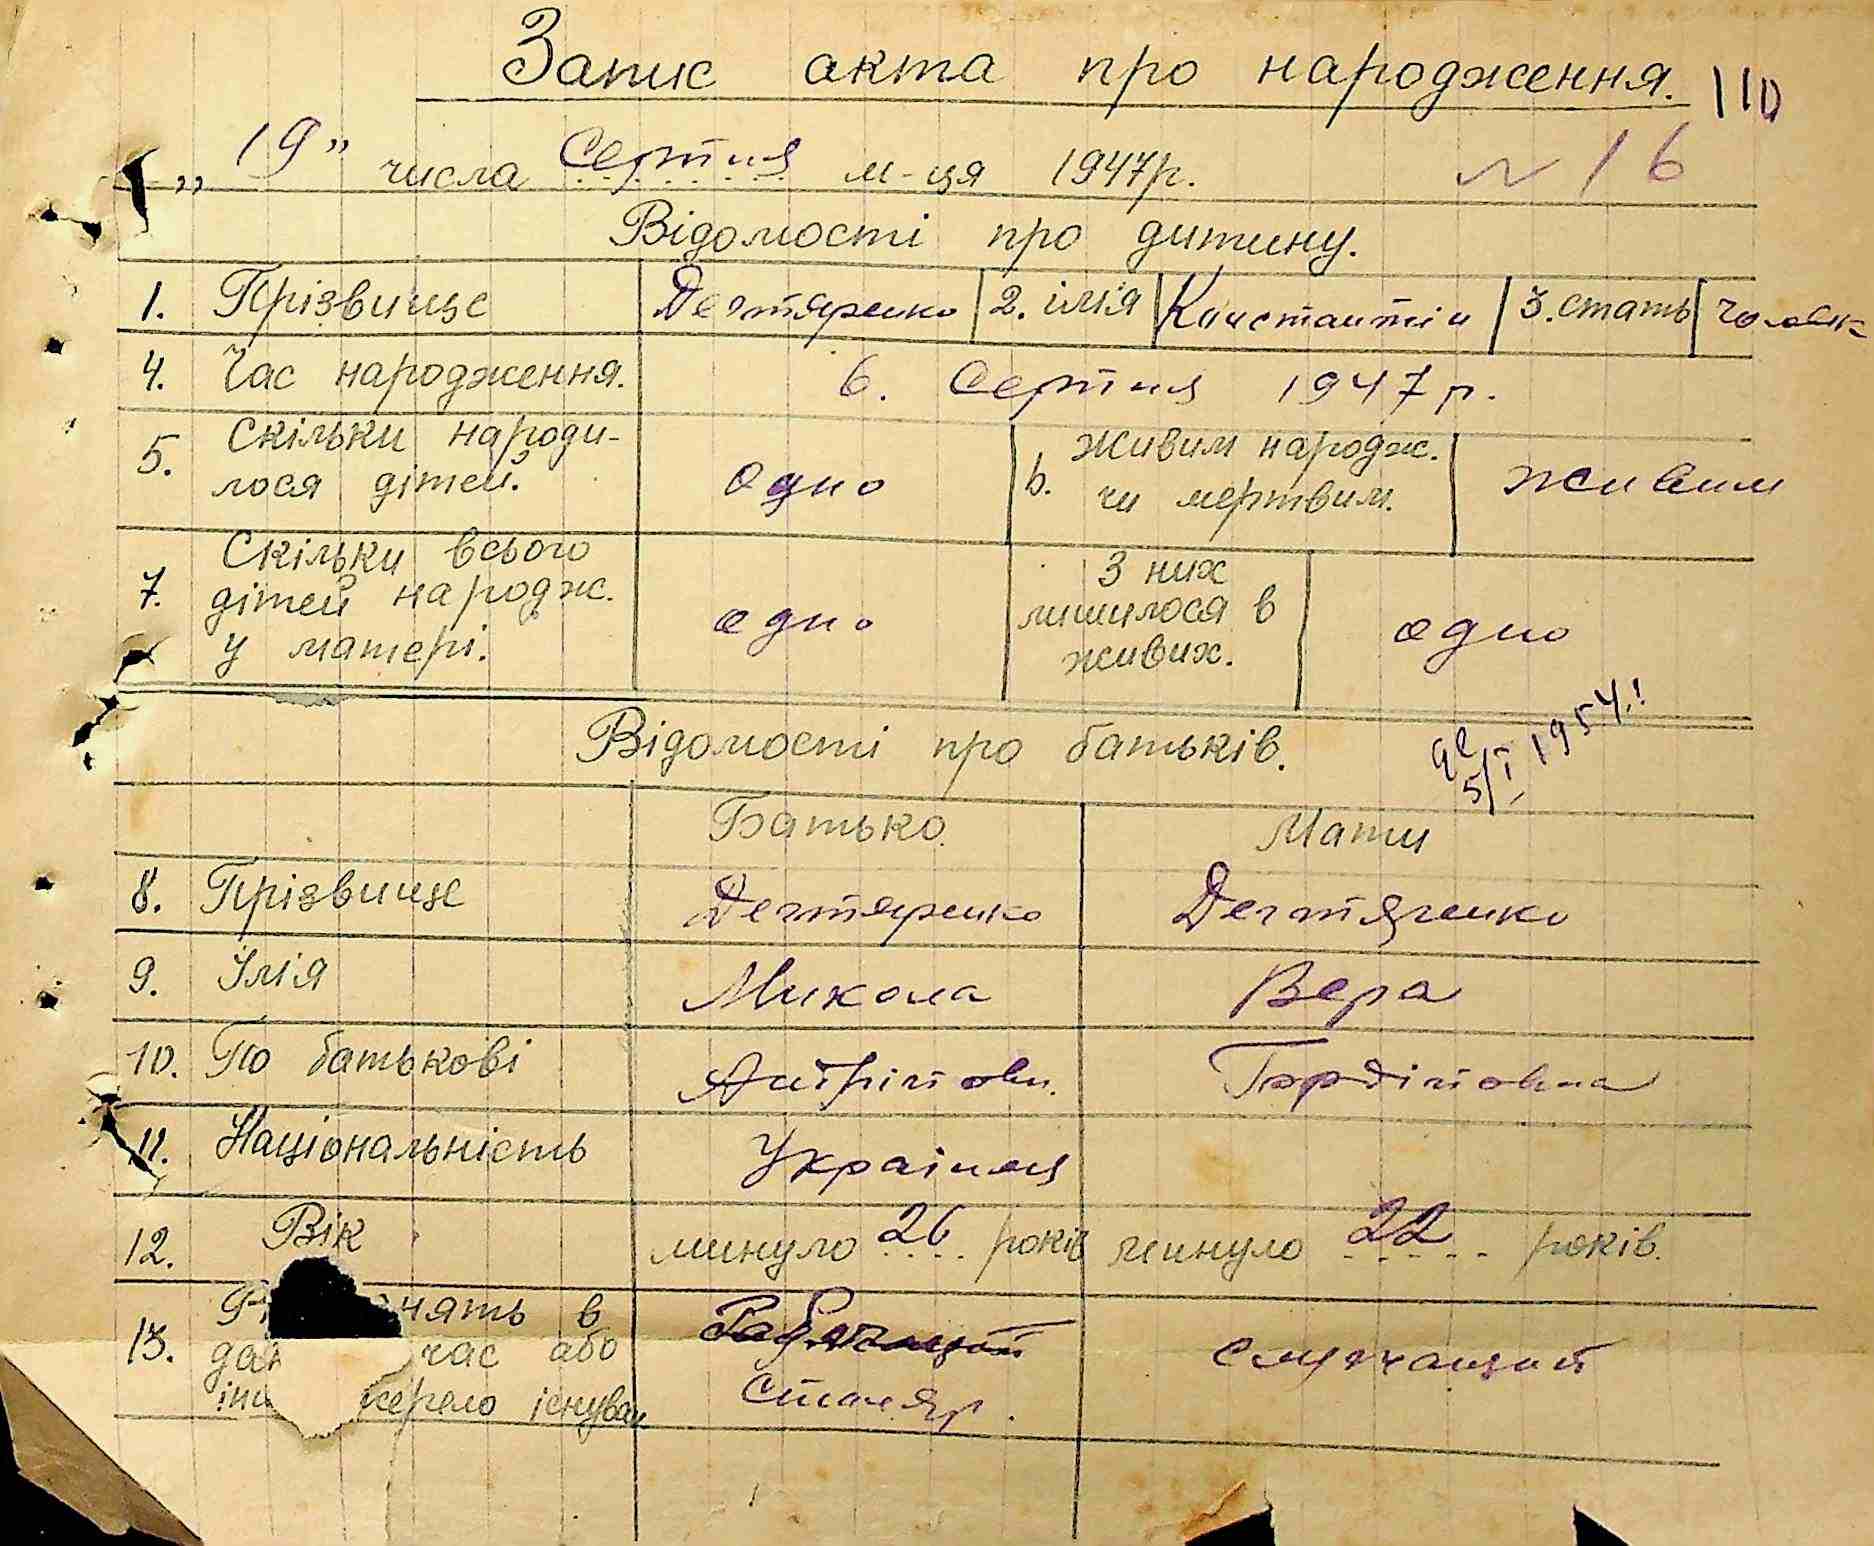 Запис акта про народження. 110
„19” числа Серпня м-ця 1947р. № 16
Відомості про дитину.
1. Прізвище Дегтяренко 2. ім'я Константін 3. стать чоловік
4. Час народження. 6. Серпня 1947 р.
5. Скільки народи-
лося дітей. одно
6. живим народж.
чи мертвим. живим
7. Скільки всього
дітей народж.
у матері. одно
З них
лишилося в
живих. одно
5/I 1954.!
Відомості про батьків.
Батько. Мати
8. Прізвище Дегтяренко Дегтяренко
9. Ім'я Микола Вера
10. По батькові Гордіговна
11. Національність Україняц
12. Вік минуло 26 років минуло 22 років.
13. нять в
час або
існуван
Рабочащий
столяр.
служащий